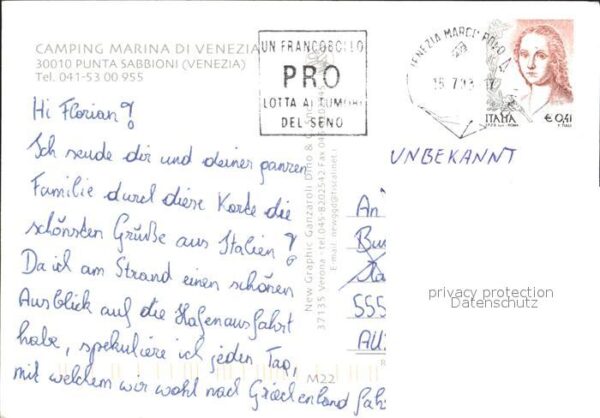 CAMPING MARINA DI VENEZIA
30010 PUNTA SABBIONI (VENEZIA)
Tel. 041-53 00 955
UN FRANCOBOLLO
PRO
LOTTA AI TUMORI
DEL SENO
VENEZIA MARCO POLO
ITALIA € 0,41
Hi Florian!
Ich sende dir und deiner ganzen
Familie durch diese Karte die
schönsten Grüße aus Italien!
Da ich am Strand einen schönen
Ausblick auf die Hafenausfahrt
habe, spekuliere ich jeden Tag,
mit welchem wir wohl nach Griechenland
New Graphic Ganzaroli Dino &
37135 Verona - tel. 045-8202542 Fax
E-mail: newggd@tiscalinet.
M22
UNBEKANNT
An
555
privacy protection
Datenschutz